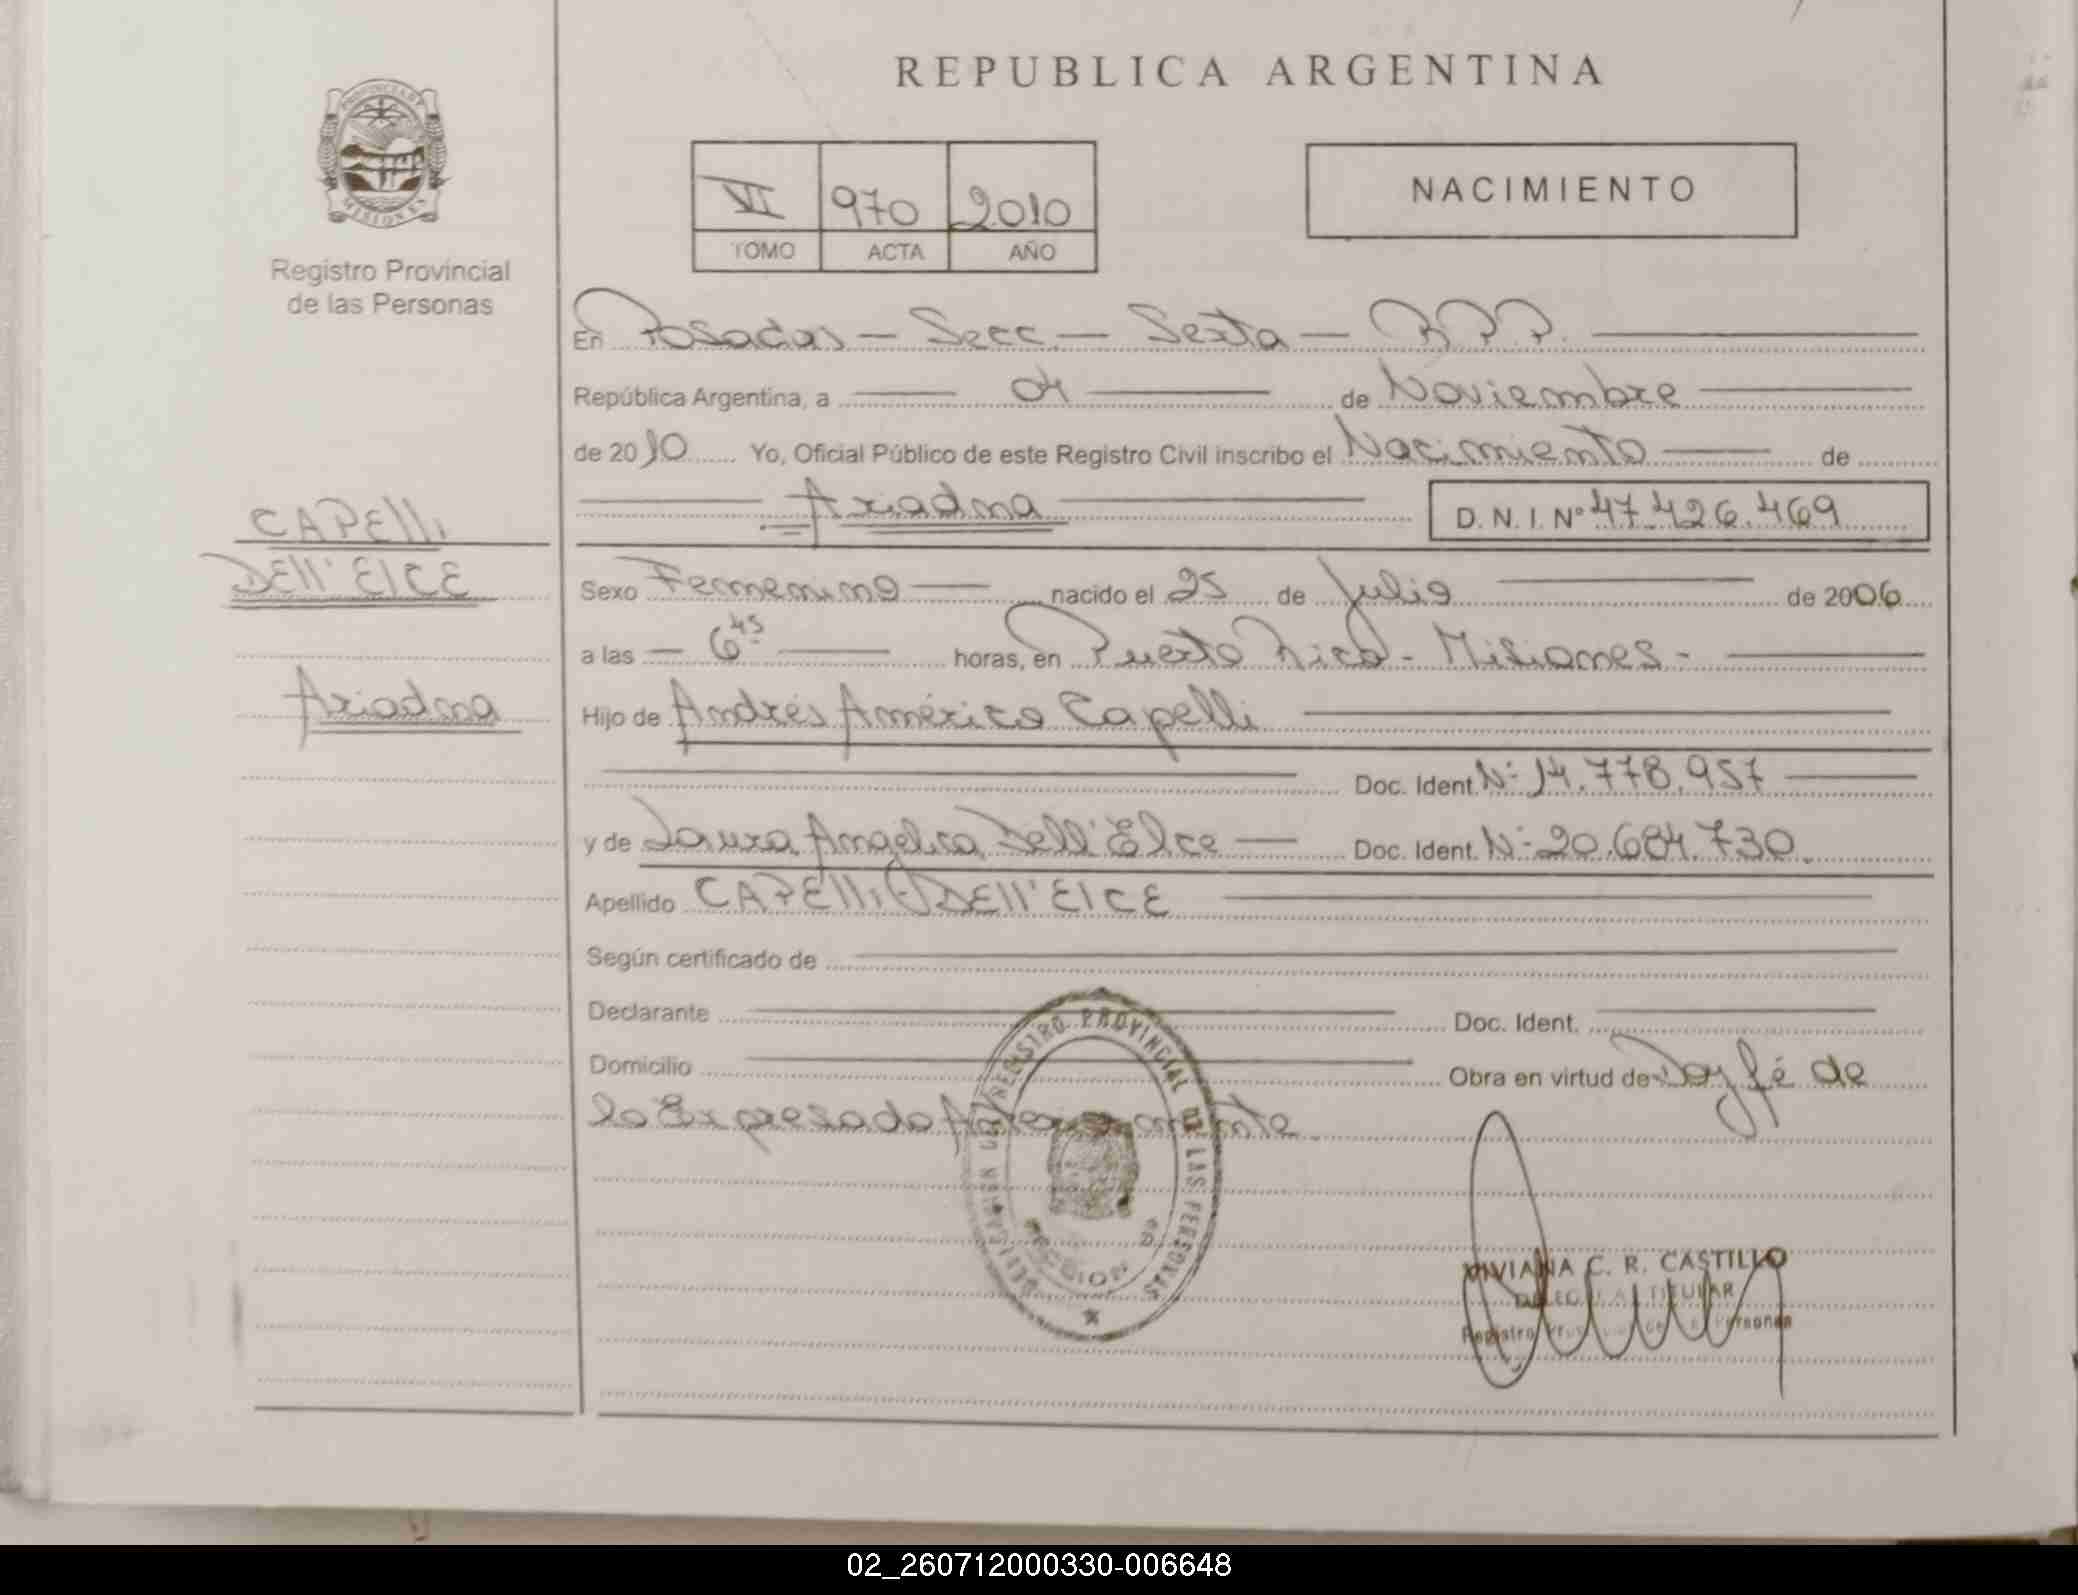 REPUBLICA ARGENTINA
PROVINCIA DE
MISIONES
Registro Provincial
de las Personas
VI 970 2010
TOMO ACTA AÑO
NACIMIENTO
En Posadas - Secc - Sexta - R.P.P.
República Argentina, a 04 de Noviembre
de 2010 Yo, Oficial Público de este Registro Civil inscribo el Nacimiento de
Ariadna D. N. I. Nº 47.426.469
CAPElli
DEll'ElCE
Ariadna
Sexo Femenino nacido el 25 de Julio de 2006
a las 6 45 horas, en Puerto Rico - Misiones -
Hijo de Andrés Américo Capelli
Doc. Ident. Nº 14.778.957
y de Laura Angelica Dell'Elce Doc. Ident. Nº 20.684.730.
Apellido CAPElli DEll'ElCE
Según certificado de
Declarante Doc. Ident.
Domicilio Obra en virtud de Doy fé de
lo Expresado Anteriormente.
REGISTRO PROVINCIAL DE LAS PERSONAS
VIVIANA C. R. CASTILLO
TITULAR
Registro de Personas
02_260712000330-006648